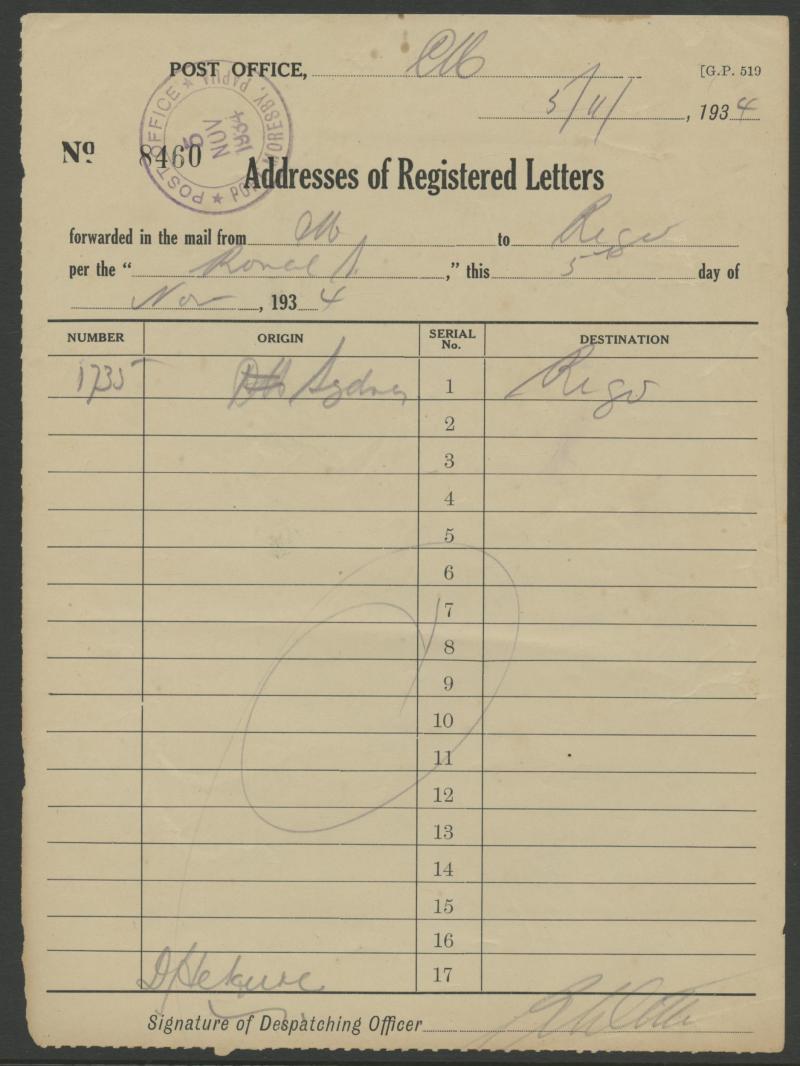 POST OFFICE,
[G.P. 519
5/11/, 1934
POST OFFICE ★ PORT MORESBY, PAPUA ★
5
NOV
1934
Nº 8460
Addresses of Registered Letters
forwarded in the mail from to Rigo
per the " ," this 5th day of
Nov, 1934
NUMBER ORIGIN SERIAL No. DESTINATION
1735 Sydney 1 Rigo
2
3
4
5
6
7
8
9
10
11
12
13
14
15
16
17
Signature of Despatching Officer